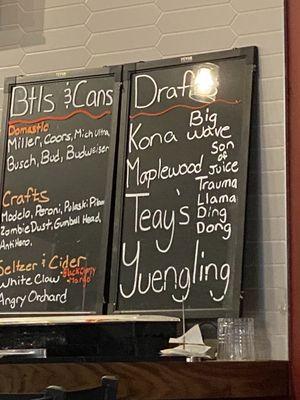 Btls & Cans
Domestic
Miller, Coors, Mich Ultra,
Busch, Bud, Budweiser
Crafts
Modelo, Peroni, Pulaski Pilsn
Zombie Dust, Gumball Head,
Anti Hero,
Seltzer & Cider
White Claw
Black Cherry
Mango
Angry Orchard
Drafts
Kona Big Wave
Maplewood Son of Juice
Teay's Trauma Llama Ding Dong
Yuengling